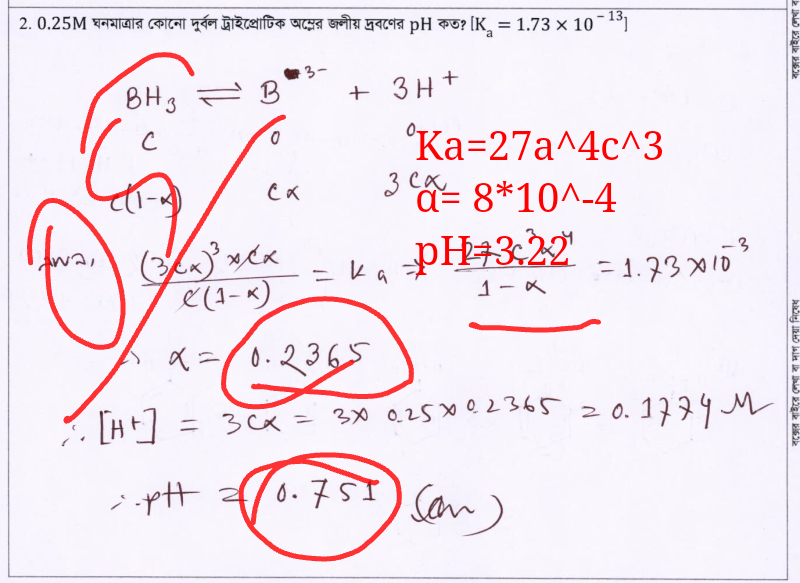 2. 0.25M ঘনমাত্রার কোনো দুর্বল ট্রাইপ্রোটিক অম্লের জলীয় দ্রবণের pH কত? [Kₐ = 1.73 × 10⁻¹³]
BH₃ ⇌ B³⁻ + 3H⁺
C 0 0
C(1-α) Cα 3Cα
Ka=27a^4c^3
α= 8*10^-4
pH=3.22
(3Cα)³×Cα / C(1-α) = Ka ⇒ 27C³α⁴ / 1-α = 1.73×10⁻³
∴ α = 0.2365
∴ [H⁺] = 3Cα = 3× 0.25×0.2365 = 0.1774 M
∴ pH = 0.751 (Ans)
বক্সের বাইরে লেখা বা দাগ দেয়া নিষেধ